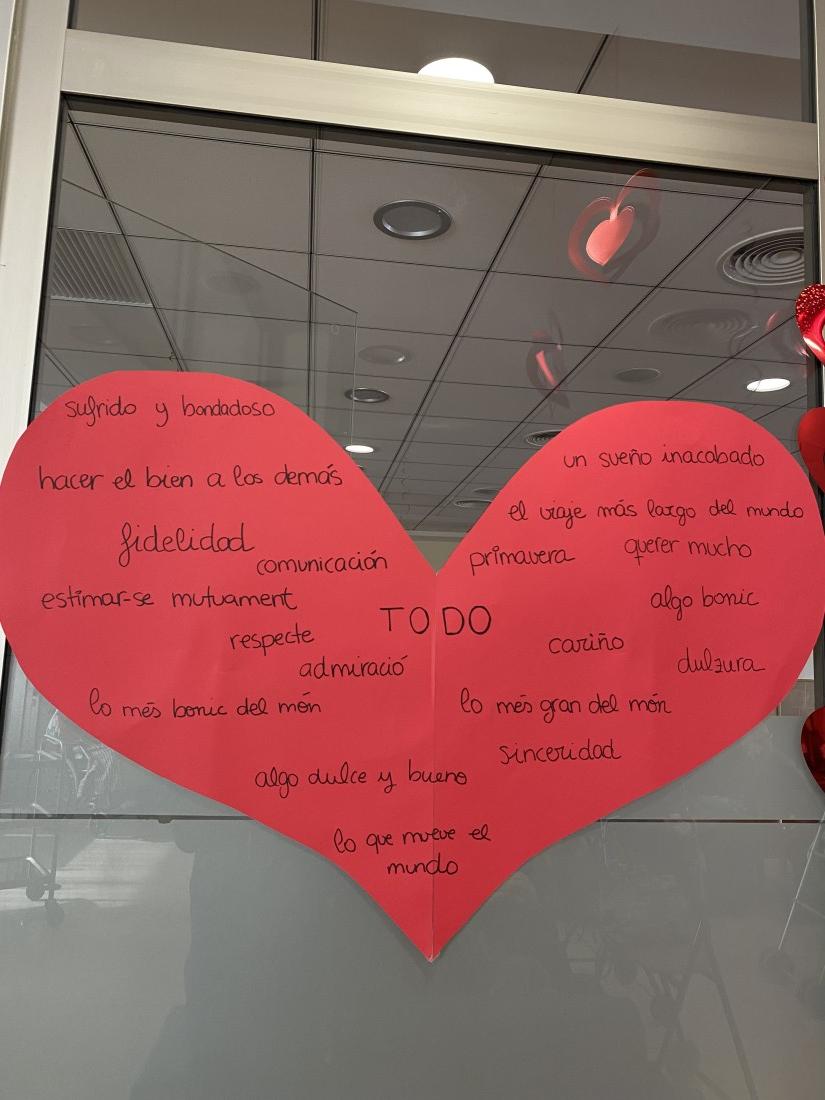 sufrido y bondadoso
hacer el bien a los demás
fidelidad
comunicación
estimar-se mutuament
respecte
admiració
lo més bonic del món
TODO
un sueño inacabado
el viaje más largo del mundo
primavera
querer mucho
algo bonic
cariño
dulzura
lo més gran del món
sinceridad
algo dulce y bueno
lo que mueve el
mundo